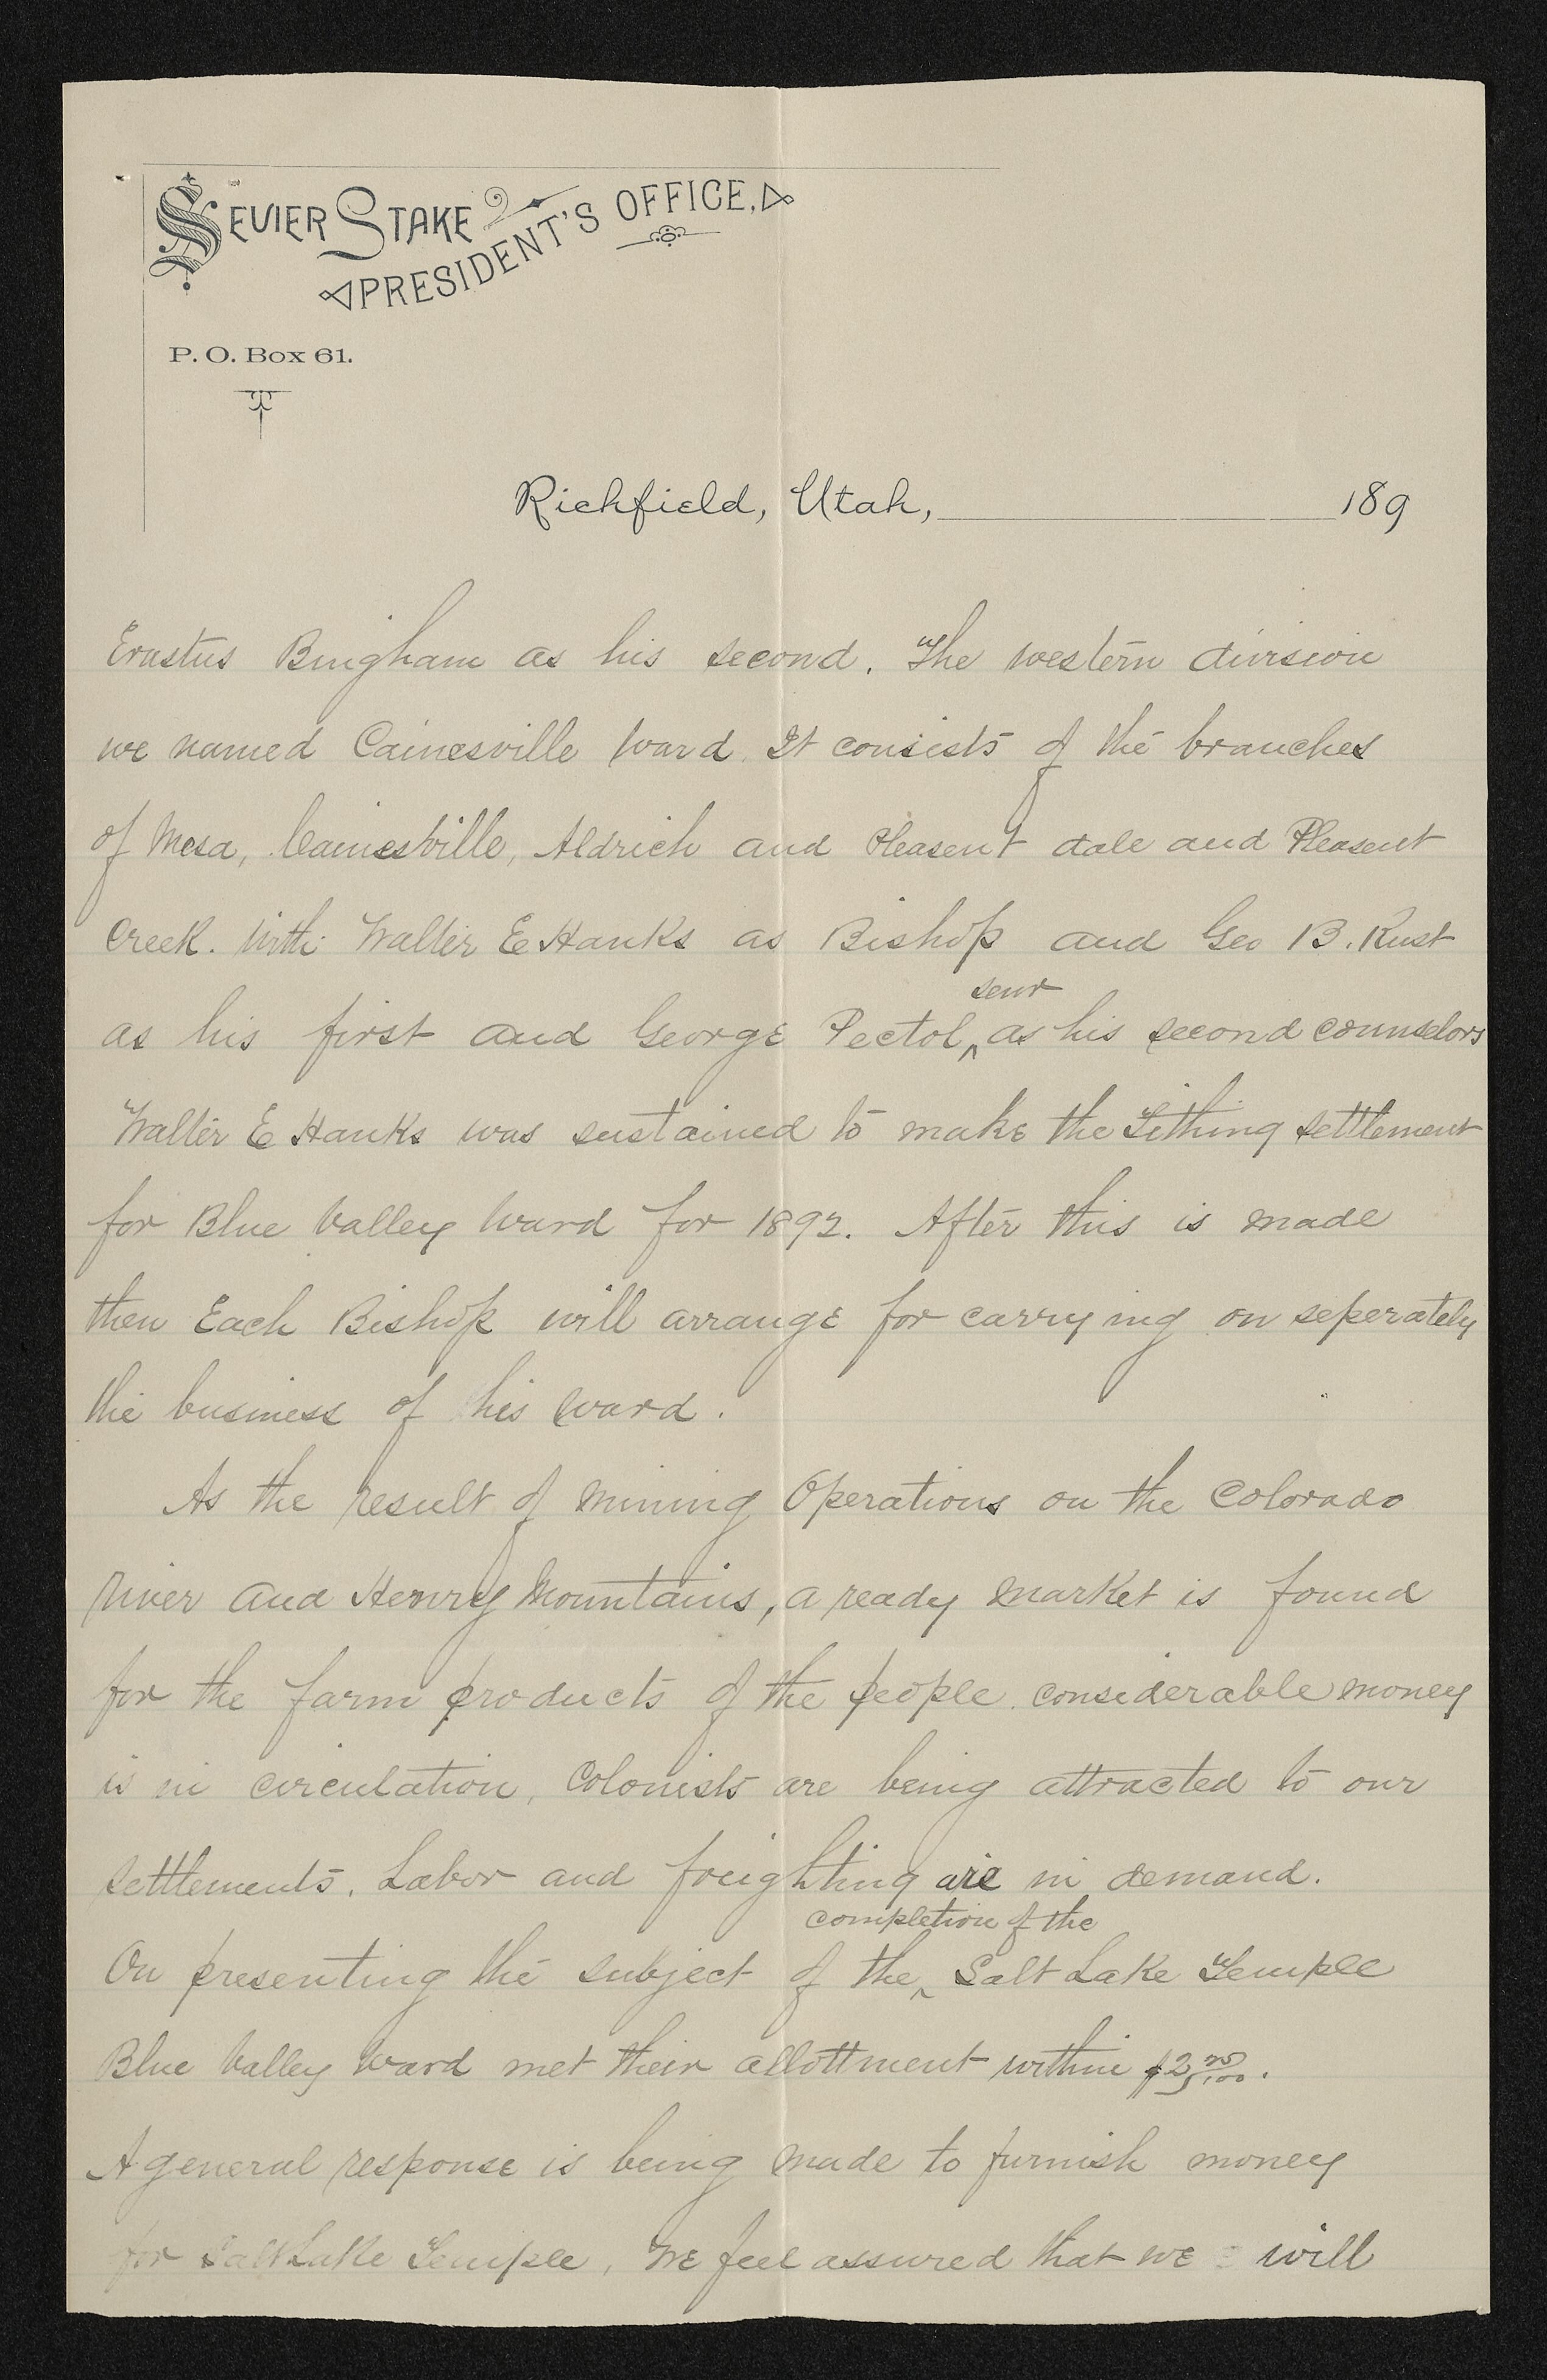 SEVIER STAKE
PRESIDENT'S OFFICE,
P. O. Box 61.
Richfield, Utah, 189
Erastus Bingham as his second. The western division
we named Cainesville Ward. It consists of the branches
of Mesa, Cainesville, Aldrich and Pleasent dale and Pleasent
Creek. With Walter E Hanks as Bishop and Geo B. Rust
senr
as his first and George Pectol ^ as his second counselors
Walter E Hanks was sustained to make the Tithing settlement
for Blue Valley Ward for 1892. After this is made
then Each Bishop will arrange for carrying on seperately
the business of his ward.
As the result of mining Operations on the Colorado
River and Henry Mountains, a ready market is found
for the farm products of the people. considerable money
is in circulation, Colonists are being attracted to our
settlements. Labor and freighting are in demand.
completion of the
On presenting the subject of the ^ Salt Lake Temple
Blue Valley Ward met their allottment within
A general response is being made to furnish money
for Salt Lake Temple, We feel assured that we will